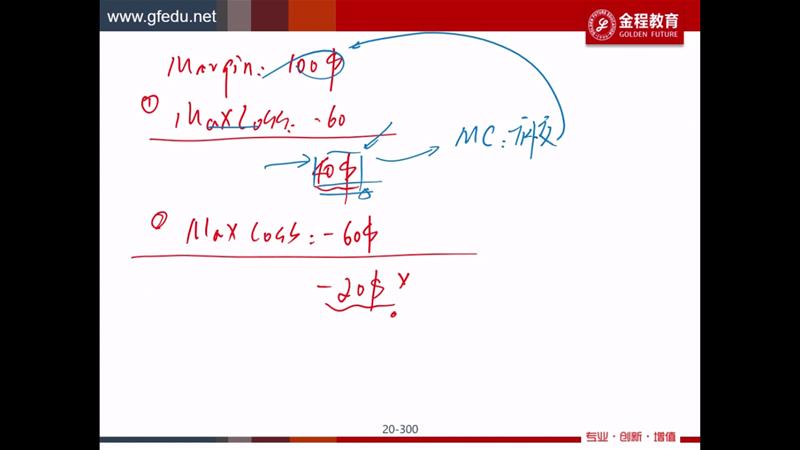 www.gfedu.net
金程教育
GOLDEN FUTURE
Margin: 100$
① Max Loss: -60
40$
MC: 补交
② Max Loss: -60$
-20$ x
20-300
专业·创新·增值